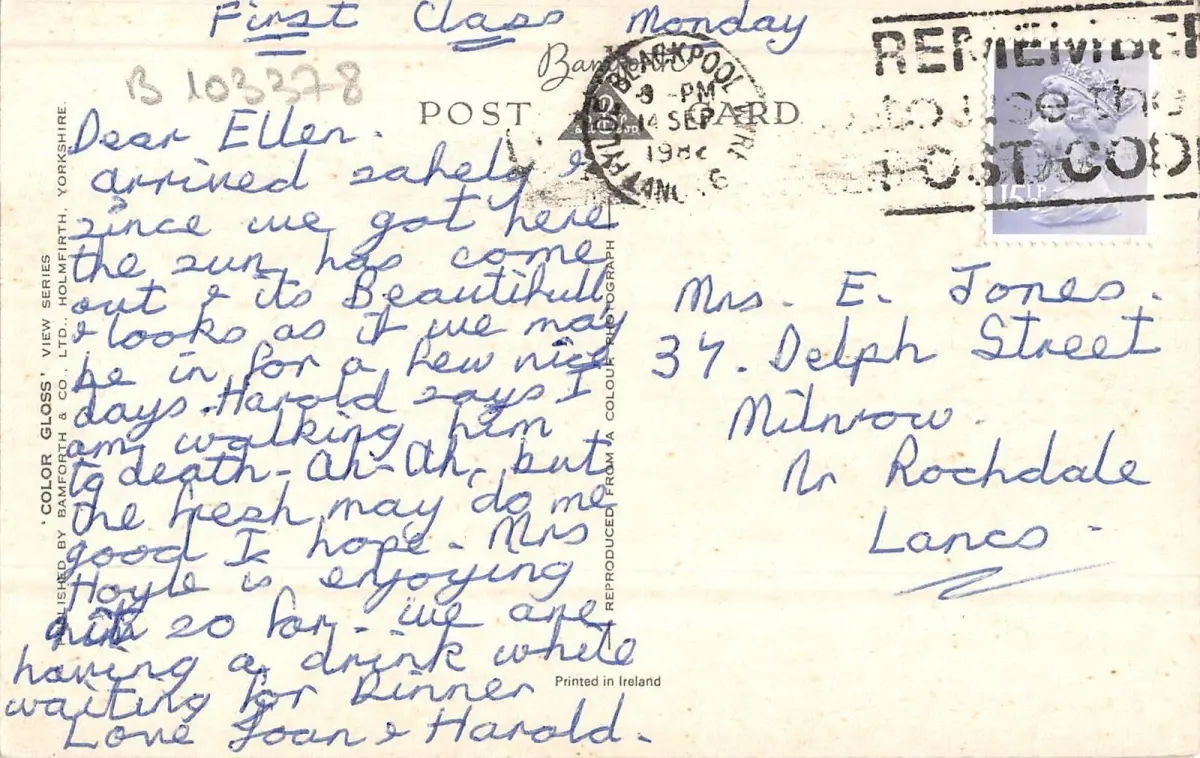 First Class Monday
B 103378
Bamforth
POST CARD
BLACKPOOL
8 -PM
14 SEP
198
REMEMBER
to use the
POST CODE
15½P
Dear Ellen.
arrived safely &
since we got here
the sun has come
out & its Beautifull
& looks as if we may
be in for a few nice
days. Harold says I
am walking him
to death - ah - ah, but
the fresh may do me
good I hope. Mrs
Hoyle is enjoying
so far. we are
having a drink while
waiting for Dinner
Love Joan & Harold.
Mrs. E. Jones.
37. Delph Street
Milnrow.
Nr Rochdale
Lancs.
'COLOR GLOSS' VIEW SERIES
PUBLISHED BY BAMFORTH & CO., LTD., HOLMFIRTH, YORKSHIRE.
REPRODUCED FROM A COLOUR PHOTOGRAPH
Printed in Ireland